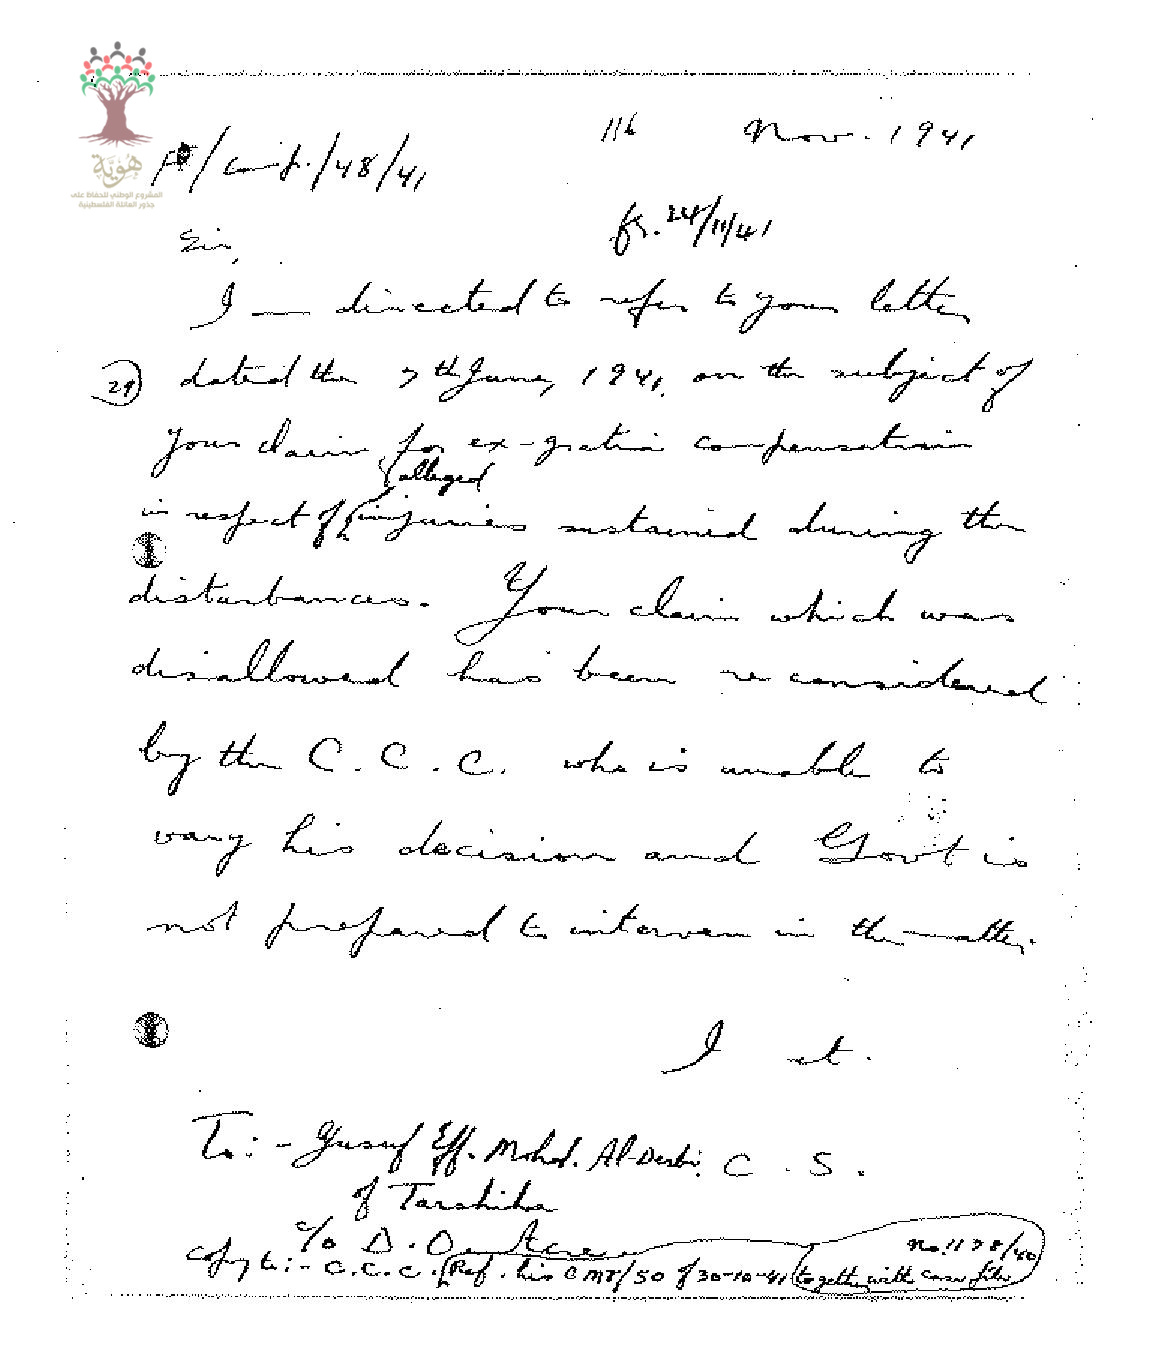 هوية
المشروع الوطني للحفاظ على
جذور العائلة الفلسطينية
Nov. 1941
/48/41
24/11/41
Sir,
I am directed to refer to your letter
29 dated the 7th June, 1941, on the subject of
your claim for ex-gratia compensation
alleged
in respect of injuries sustained during the
disturbances. Your claim which was
disallowed has been reconsidered
by the C.C.C. who is unable to
vary his decision and Govt is
not prepared to intervene in the matter.
I et.
To:- Yusuf Eff. Mohd. Al-Desbi C.S.
of Tarshiha
c/o D.O. Acre
Copy to:- C.C.C. (Ref. his CMT/50 of 30-10-41 together with case file
No. 1178/40)